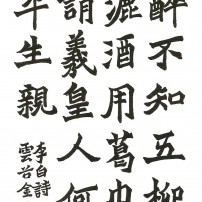 醉不知五柳
漉酒用葛巾
謂羲皇人何
平生親
李白詩
雲谷全